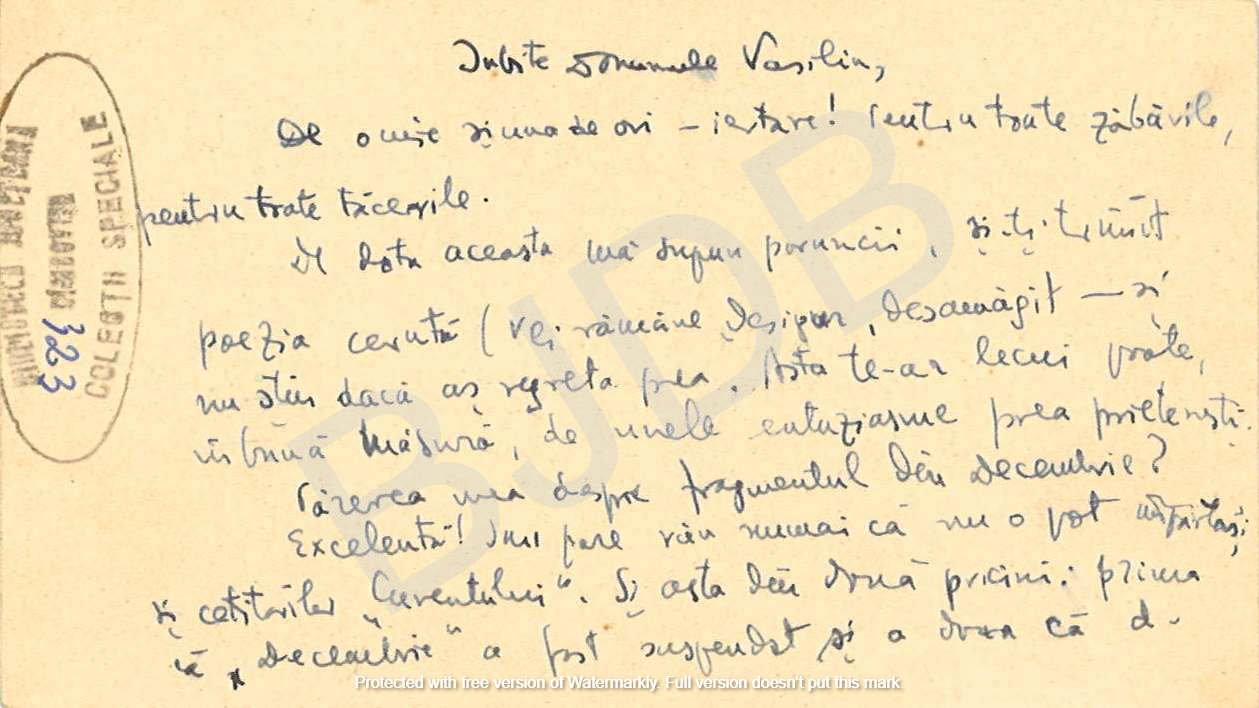 Iubite domnule Vasiliu,
De o mie și una de ori – iertare! Pentru toate zăbăvile,
pentru toate tăcerile.
De data aceasta mă supun poruncii, și-ți trimit
poezia cerută (Vei rămâne, desigur, desamăgit — și
nu știu dacă aș regreta prea. Asta te-ar lecui poate,
în bună măsură, de unele entuziasme prea prietenești.
Părerea mea despre fragmentul din Decembrie?
Excelentă! Îmi pare rău numai că nu o pot împărtăși
și cetitorilor „Cuvântului". Și asta din două pricini: prima
că „Decembrie" a fost suspendat și a doua că d-
COLECȚII SPECIALE
323
BJDB
Protected with free version of Watermarkly. Full version doesn't put this mark